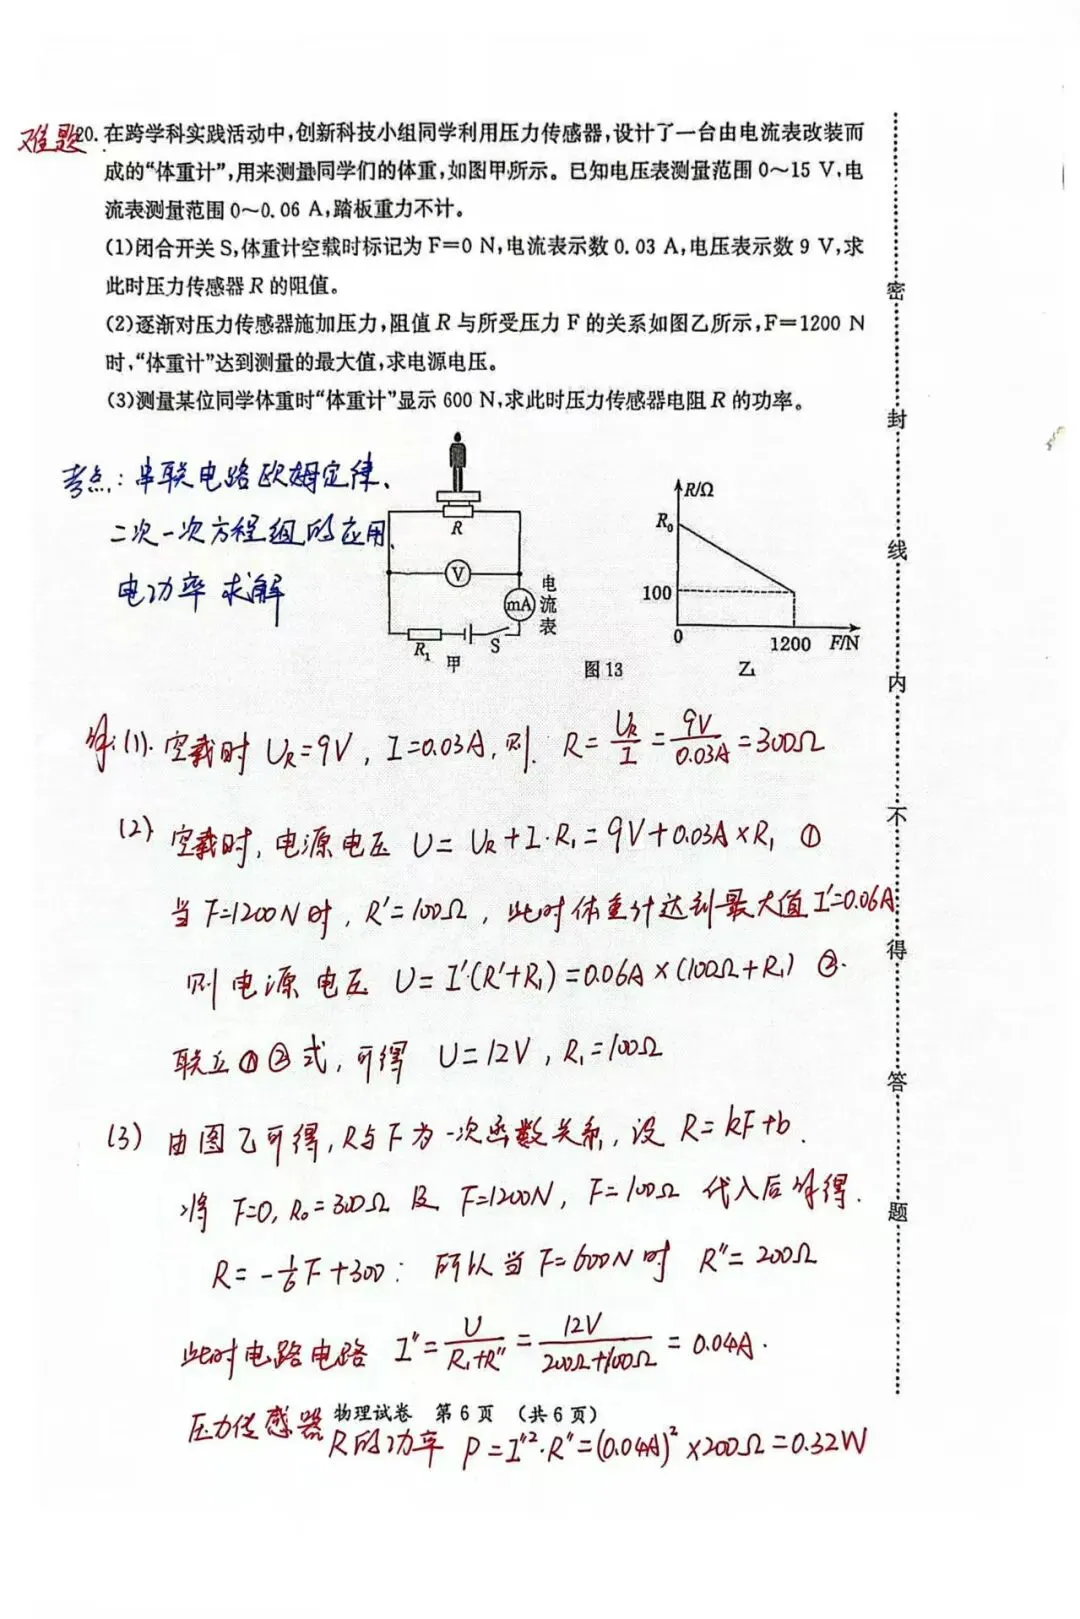 难题20.在跨学科实践活动中,创新科技小组同学利用压力传感器,设计了一台由电流表改装而
成的“体重计”,用来测量同学们的体重,如图甲所示。已知电压表测量范围0～15 V,电
流表测量范围0～0.06 A,踏板重力不计。
(1)闭合开关S,体重计空载时标记为F=0 N,电流表示数0.03 A,电压表示数9 V,求
此时压力传感器R的阻值。
(2)逐渐对压力传感器施加压力,阻值R与所受压力F的关系如图乙所示,F=1200 N
时,“体重计”达到测量的最大值,求电源电压。
(3)测量某位同学体重时“体重计”显示600 N,求此时压力传感器电阻R的功率。
考点:串联电路欧姆定律、
二次一次方程组的应用、
电功率求解
R
V
mA
电流表
R₁
S
甲
R/Ω
R₀
100
0
1200
F/N
乙
图13
解:(1).空载时 U_R=9V, I=0.03A,则: R=U_R/I=9V/0.03A=300Ω
(2) 空载时,电源电压 U=U_R+I·R₁=9V+0.03A×R₁ ①
当F=1200N时, R'=100Ω, 此时体重计达到最大值I'=0.06A
则电源电压 U=I'·(R'+R₁)=0.06A×(100Ω+R₁) ②.
联立①②式,可得 U=12V, R₁=100Ω
(3) 由图乙可得,R与F为一次函数关系,设 R=kF+b.
将 F=0, R₀=300Ω 及 F=1200N, F=100Ω 代入后解得.
R=-1/6F+300: 所以当F=600N时 R"=200Ω
此时电路电路 I"=U/(R₁+R")=12V/(200Ω+100Ω)=0.04A.
物理试卷 第6页 (共6页)
压力传感器R的功率 P=I"²·R"=(0.04A)²×200Ω=0.32W
密封线内不得答题